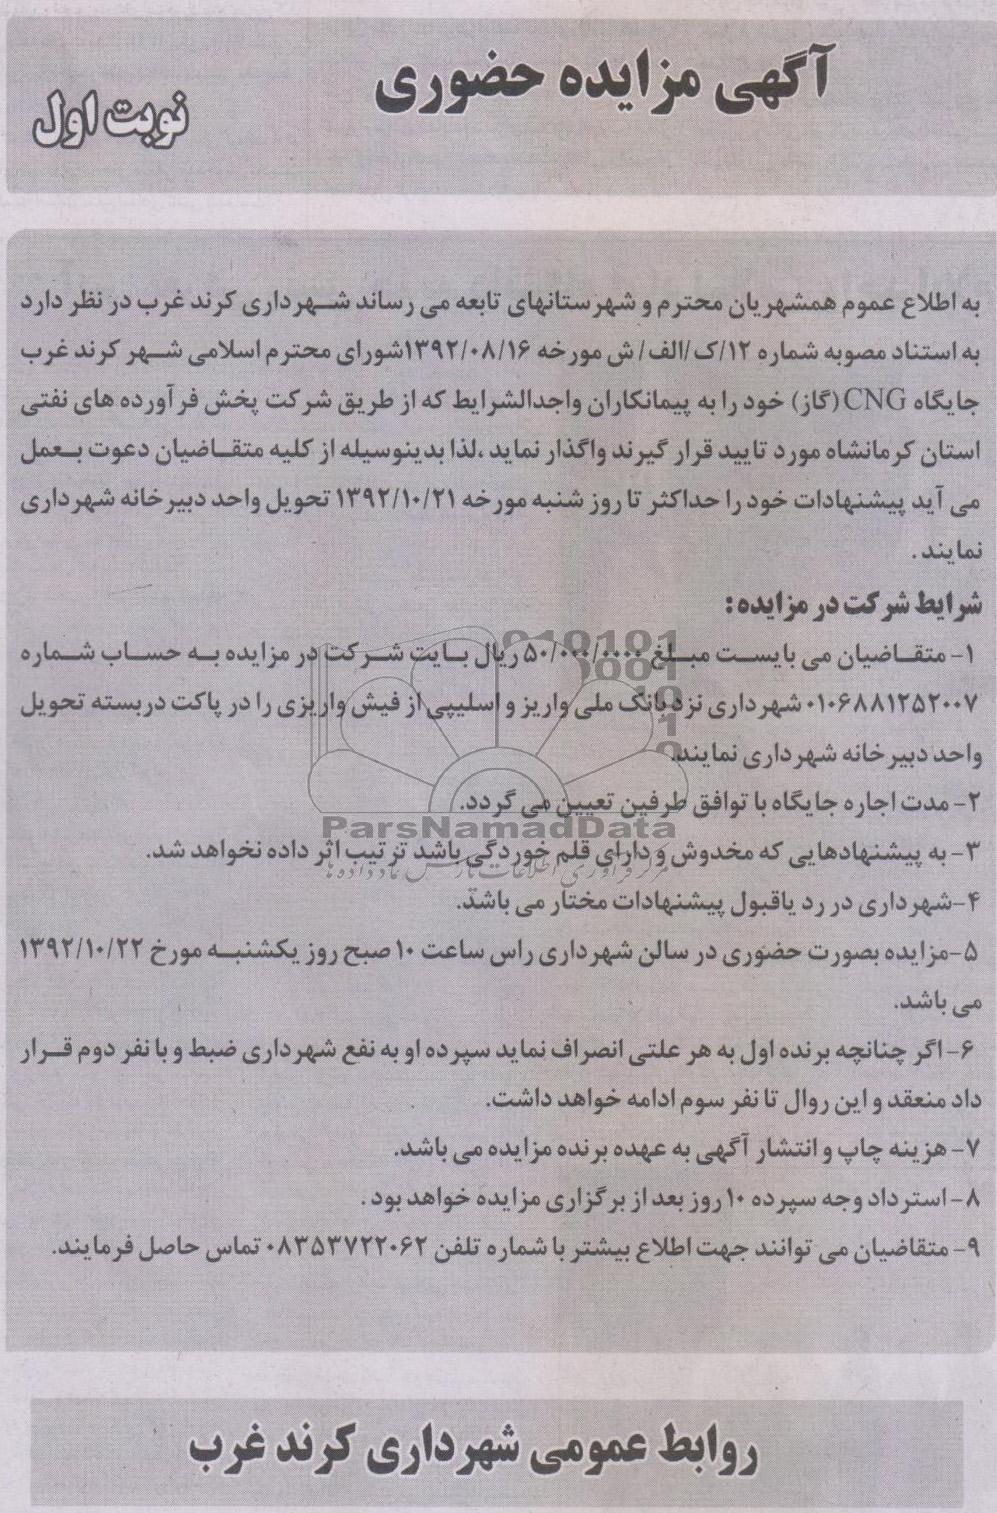 آگهی مزایده حضوری
نوبت اول
به اطلاع عموم همشهریان محترم و شهرستانهای تابعه می رساند شهرداری کرند غرب در نظر دارد
به استناد مصوبه شماره ۱۲/ک/الف/ش مورخه ۱۳۹۲/۰۸/۱۶شورای محترم اسلامی شهر کرند غرب
جایگاه CNG(گاز) خود را به پیمانکاران واجدالشرایط که از طریق شرکت پخش فرآورده های نفتی
استان کرمانشاه مورد تایید قرار گیرند واگذار نماید ،لذا بدینوسیله از کلیه متقاضیان دعوت بعمل
می آید پیشنهادات خود را حداکثر تا روز شنبه مورخه ۱۳۹۲/۱۰/۲۱ تحویل واحد دبیرخانه شهرداری
نمایند .
شرایط شرکت در مزایده:
۱- متقاضیان می بایست مبلغ ۵۰/۰۰۰/۰۰۰ ریال بابت شرکت در مزایده به حساب شماره
۰۱۰۶۸۸۱۲۵۲۰۰۷ شهرداری نزد بانک ملی واریز و اسلیپی از فیش واریزی را در پاکت دربسته تحویل
واحد دبیرخانه شهرداری نمایند.
۲- مدت اجاره جایگاه با توافق طرفین تعیین می گردد.
ParsNamadData
۳- به پیشنهادهایی که مخدوش و دارای قلم خوردگی باشد ترتیب اثر داده نخواهد شد.
مرکز فرآوری اطلاعات پارس نماد داده ها
۴-شهرداری در رد یاقبول پیشنهادات مختار می باشد.
۵-مزایده بصورت حضوری در سالن شهرداری راس ساعت ۱۰ صبح روز یکشنبه مورخ ۱۳۹۲/۱۰/۲۲
می باشد.
۶- اگر چنانچه برنده اول به هر علتی انصراف نماید سپرده او به نفع شهرداری ضبط و با نفر دوم قرار
داد منعقد و این روال تا نفر سوم ادامه خواهد داشت.
۷- هزینه چاپ و انتشار آگهی به عهده برنده مزایده می باشد.
۸- استرداد وجه سپرده ۱۰ روز بعد از برگزاری مزایده خواهد بود .
۹- متقاضیان می توانند جهت اطلاع بیشتر با شماره تلفن ۰۸۳۵۳۷۲۲۰۶۲ تماس حاصل فرمایند.
روابط عمومی شهرداری کرند غرب